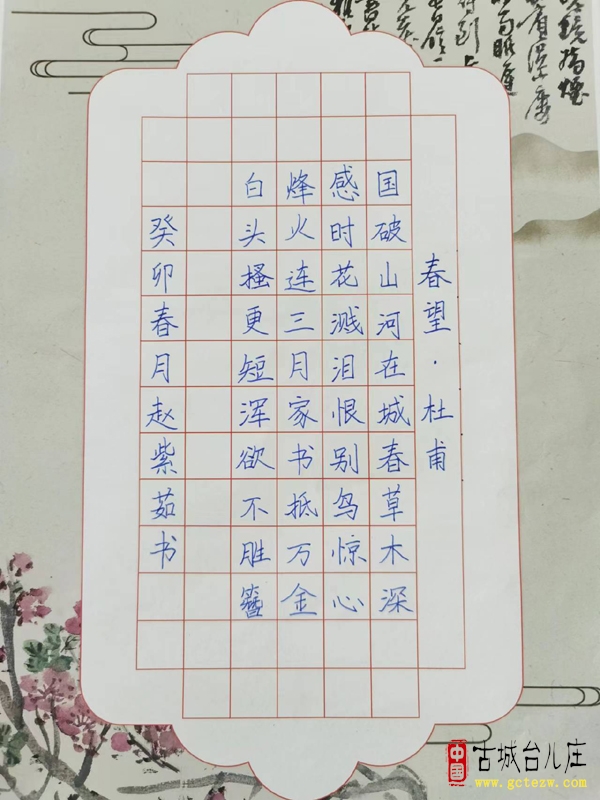 春望·杜甫
国破山河在城春草木深
感时花溅泪恨别鸟惊心
烽火连三月家书抵万金
白头搔更短浑欲不胜簪
癸卯春月赵紫茹书
中国
古城台儿庄
www.gctezw.com